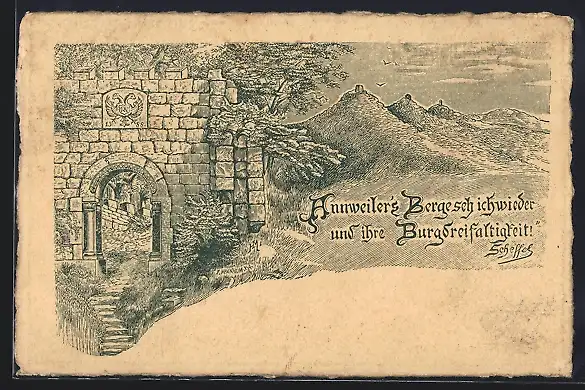 Annweiler's Berge seh ich wieder
und ihre Burgdreifaltigkeit!"
Scheffel